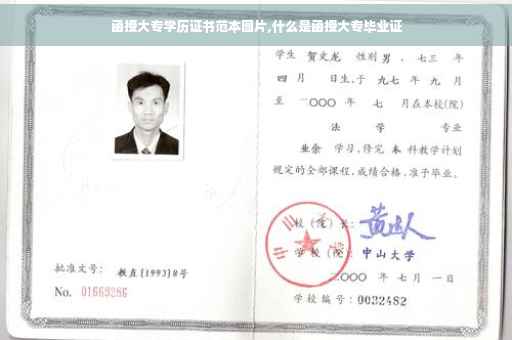 函授大专学历证书范本图片,什么是函授大专毕业证
学生 贺文龙 性别 男 ,七三 年
四 月 日生,于 九七 年 九 月
至 二〇〇〇 年 七 月在本校(院)
法 学 专业
业余 学习,修完 本 科教学计划
规定的全部课程,成绩合格,准予毕业。
校(院)长:
学 校(院): 中山大学
二〇〇〇 年 七 月 一 日
学校编号: 0032482
批准文号: 教直[1993]8号
No. 01663286